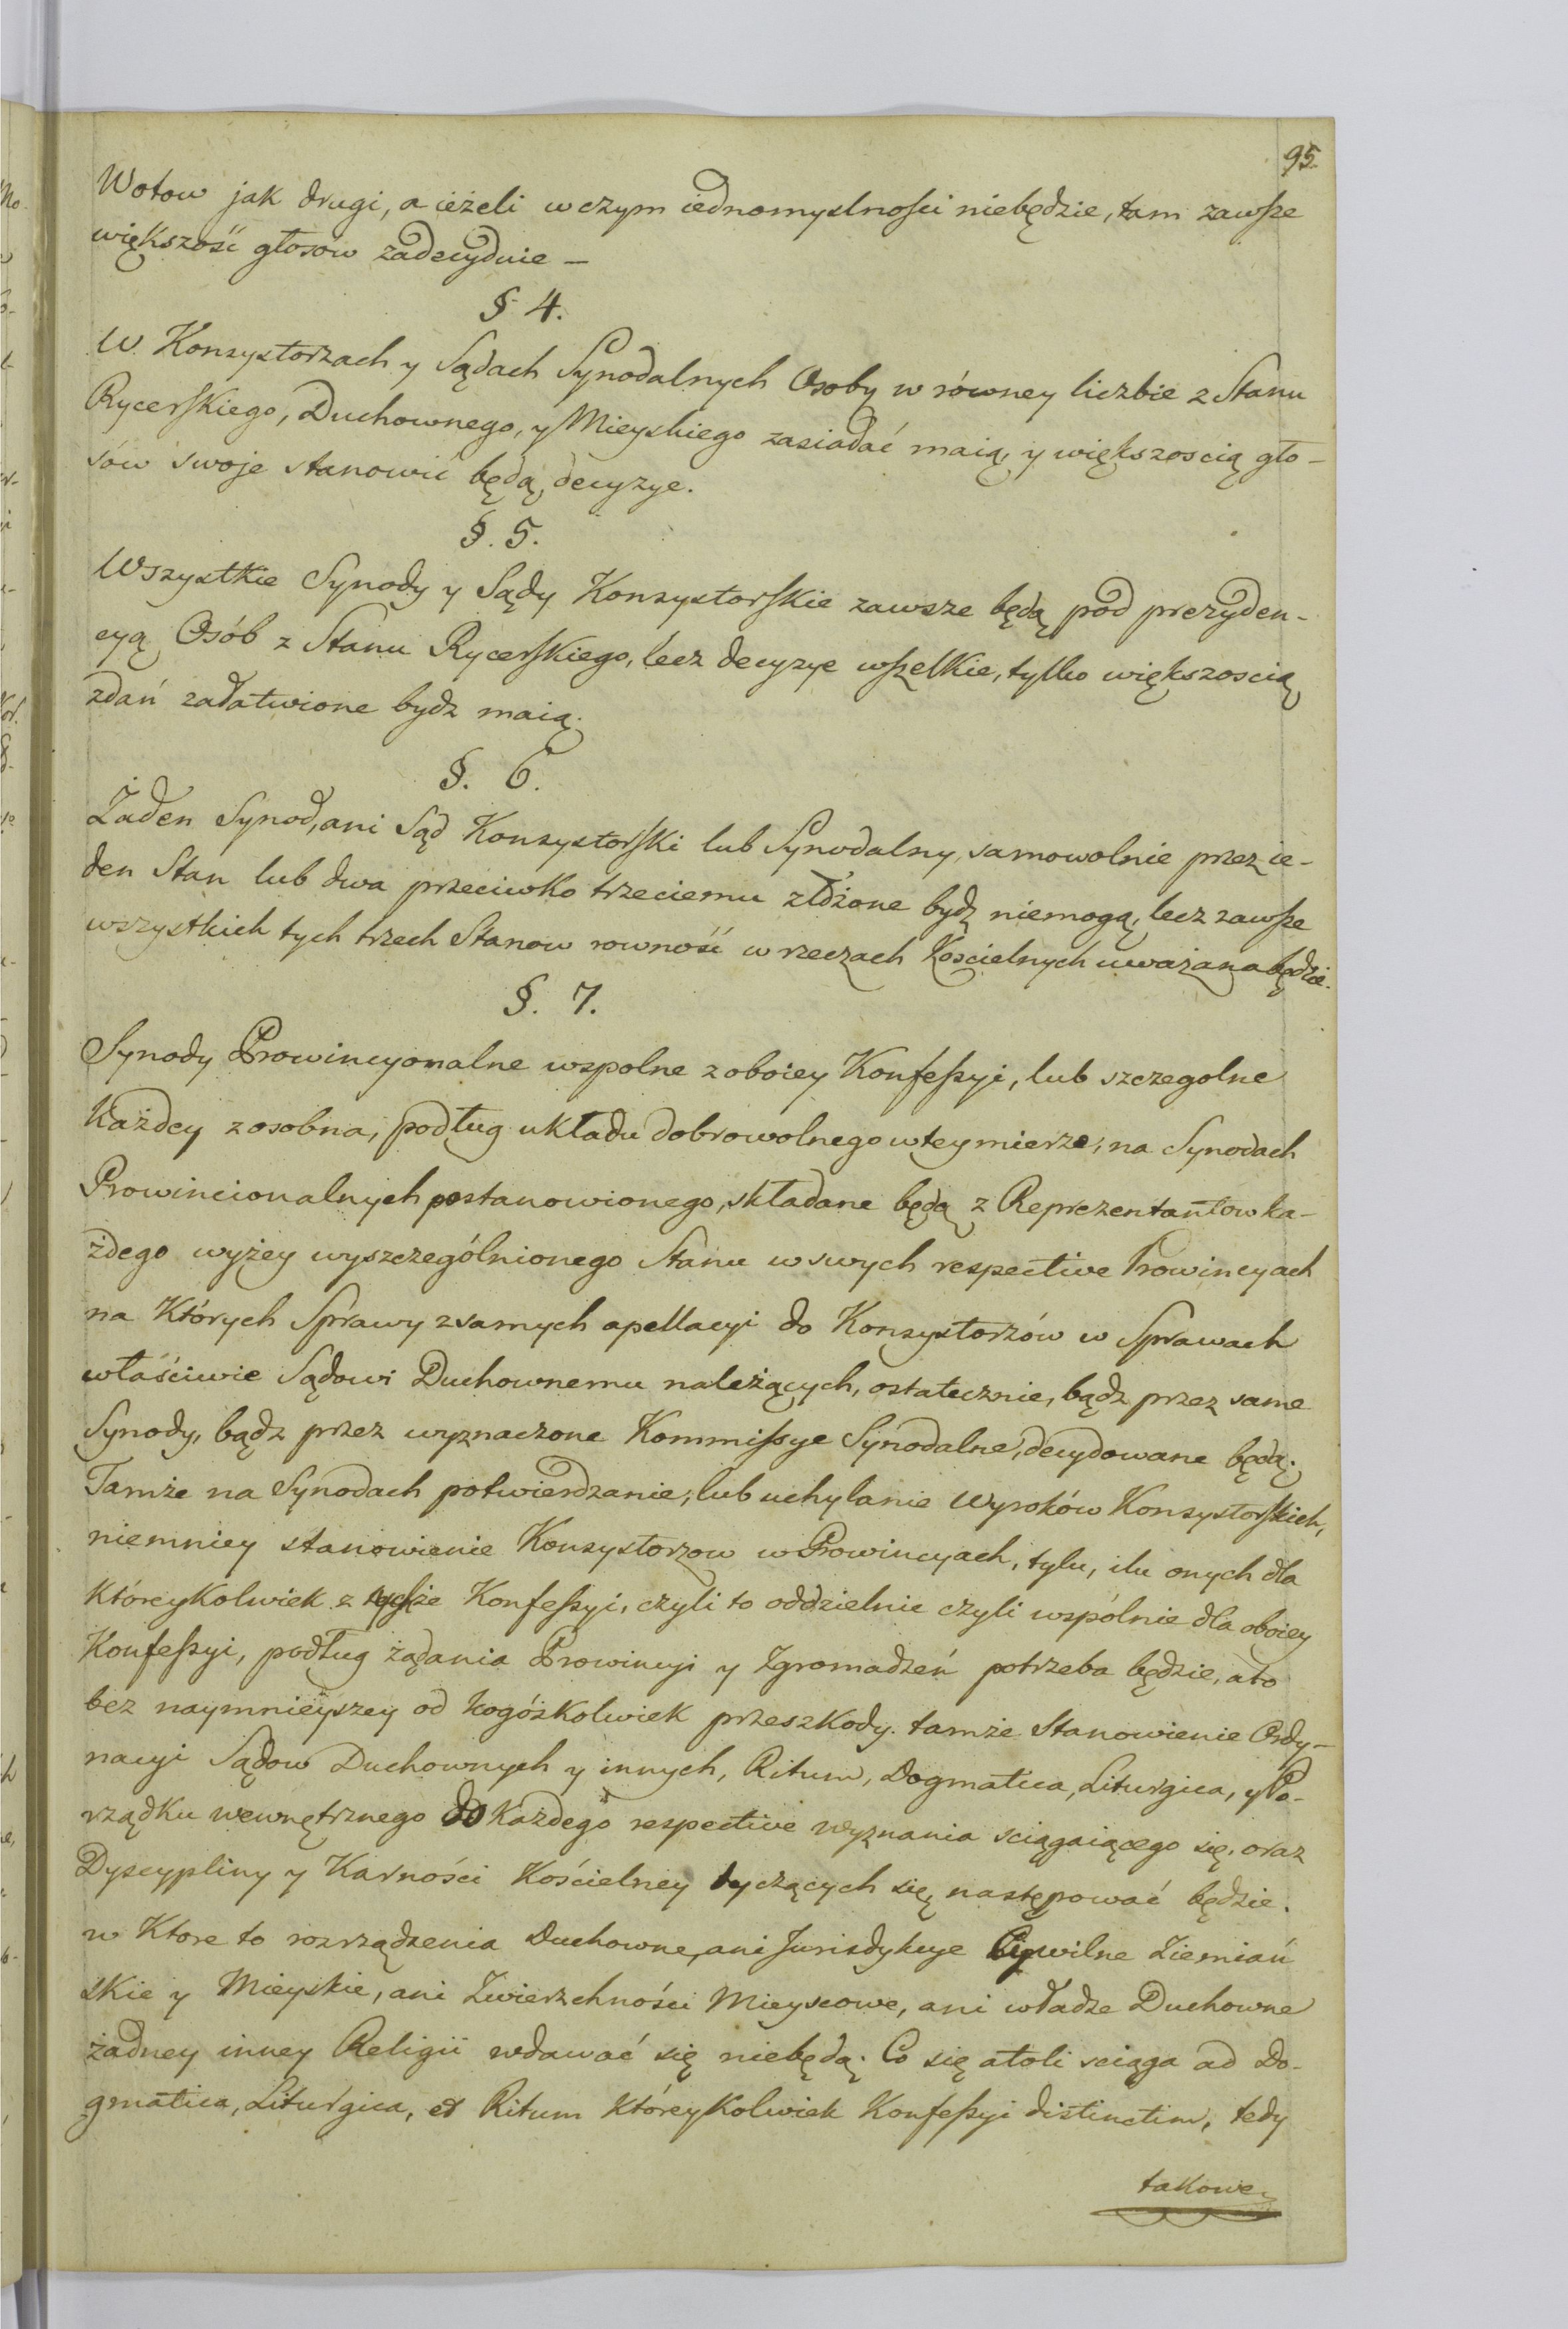 95.
Wotow jak drugi, a ieżeli w czym iednomyslności niebędzie, tam zawsze
większość głosow zadecyduie —
§ 4.
W Konsystorzach y Sądach Synodalnych Osoby w równey liczbie z Stanu
Rycerskiego, Duchownego, y Mieyskiego zasiadać maią, y większoscią gło-
sów swoje stanowić będą, decyzye.
§. 5.
Wszystkie Synody y Sądy Konsystorskie zawsze będą pod prezyden-
cyą Osób z Stanu Rycerskiego, lecz decyzye wszelkie, tylko większoscią
zdań załatwione bydz maią.
§. 6.
Żaden Synod, ani Sąd Konsystorski lub Synodalny, samowolnie przez ie-
den Stan lub dwa przeciwko trzeciemu złożone bydz niemogą, lecz zawsze
wszystkich tych trzech Stanow rowność w rzeczach Kościelnych uważana będzie.
§. 7.
Synody Prowincyonalne wspolne z oboiey Konfessyi, lub szczegolne
Każdey z osobna, podług układu dobrowolnego w tey mierze, na Synodach
Prowincionalnych postanowionego, składane będą z Reprezentantow ka-
żdego wyżey wyszczególnionego Stanu w swych respective Prowincyach
na Których Sprawy z samych apellacyi do Konsystorzów w Sprawach
właściwie Sądowi Duchownemu należących, ostatecznie, bądz przez same
Synody, bądz przez wyznaczone Kommissye Synodalne, decydowane będą;
Tamże na Synodach potwierdzanie, lub uchylanie Wyroków Konsystorskich,
niemniey stanowienie Konsystorzow w Prowincyach, tylu, ilu onych dla
Którey Kolwiek z tychże Konfessyi, czyli to oddzielnie czyli wspólnie dla oboiey
Konfessyi, podług żądania Prowincyi y Zgromadzeń potrzeba będzie, a to
bez naymnieyszey od kogóżkolwiek przeszkody. tamże Stanowienie Ordy-
nacyi Sądow Duchownych y innych, Ritum, Dogmatica, Liturgica, y Po-
rządku wewnętrznego do Każdego respective wyznania sciągaiącego się, oraz
Dyscypliny y Karności Kościelney tyczących się, następować będzie.
w Ktore to rozrządzenia Duchowne, ani Jurisdykcye Cywilne Ziemiań
skie y Mieyskie, ani Zwierzchności Mieyscowe, ani władze Duchowne
żadney inney Religii wdawać się niebędą. Co się atoli sciąga ad Do-
gmatica, Liturgica, et Ritum Którey Kolwiek Konfessyi distinctim, tedy
takowe